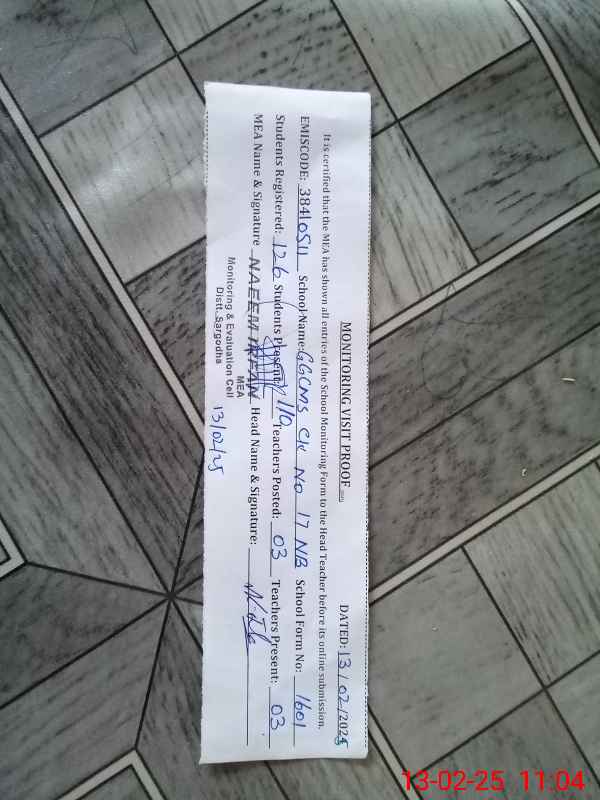 MONITORING VISIT PROOF DATED: 13/02/2025
It is certified that the MEA has shown all entries of the School Monitoring Form to the Head Teacher before its online submission.
EMISCODE: 38410511 School Name: GGCMS Ck No 17 NB School Form No: 1601
Students Registered: 126 Students Present: 110 Teachers Posted: 03 Teachers Present: 03
MEA Name & Signature NAEEM IRFAN Head Name & Signature:
MEA
Monitoring & Evaluation Cell
Distt. Sargodha
13/02/25
13-02-25 11:04